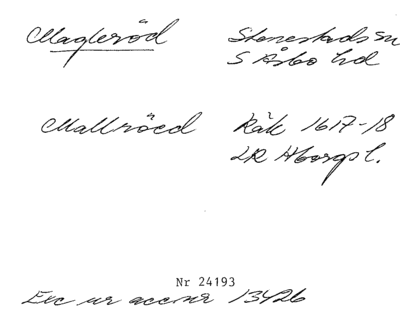 Magleröd Stenestads sn
S Åsbo hd
Mallröed Räk 1617-18
LR Hborgs l.
Nr 24193
Exc ur accnr 13426